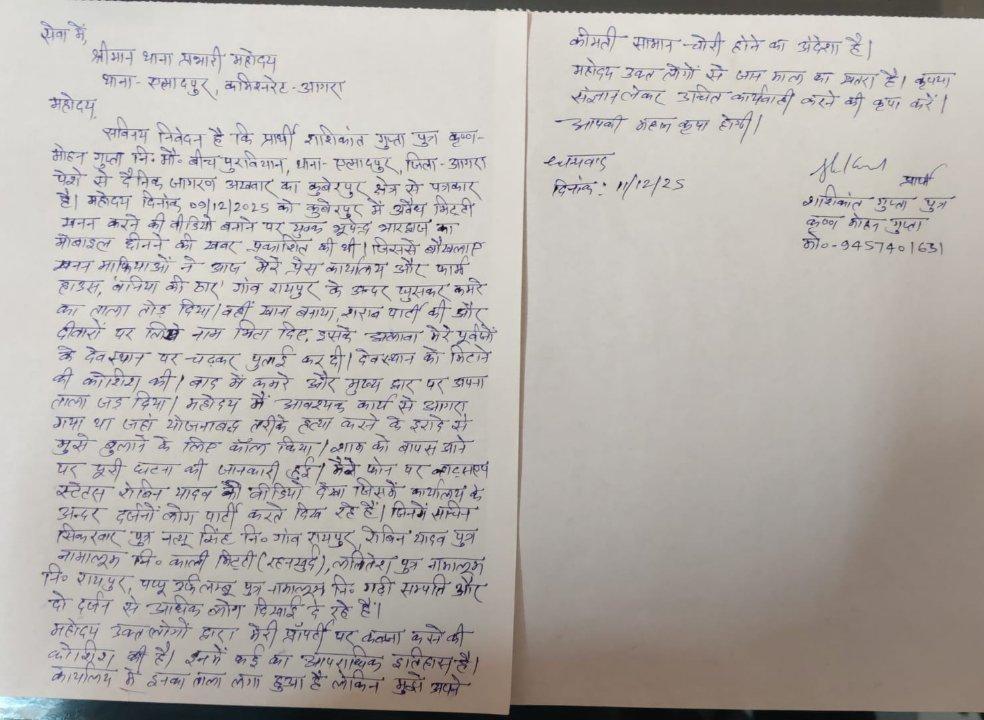 सेवा में,
श्रीमान थाना प्रभारी महोदय
थाना- एत्मादपुर, कमिश्नरेट- आगरा
महोदय,
सविनय निवेदन है कि प्रार्थी शशिकांत गुप्ता पुत्र कृष्ण-
मोहन गुप्ता नि० मौ० बीच पुरबियान, थाना- एत्मादपुर, जिला- आगरा
पेशे से दैनिक जागरण अखबार का कुबेरपुर क्षेत्र से पत्रकार
है। महोदय दिनांक 09/12/2025 को कुबेरपुर में अवैध मिट्टी
खनन करने की वीडियो बनाने पर युवक भूपेन्द्र भारद्वाज का
मोबाइल छीनने की खबर प्रकाशित की थी। जिससे बौखलाए
खनन माफियाओं ने आज मेरे प्रेस कार्यालय और फार्म
हाउस, बनिया की ठार गांव रायपुर के अन्दर घुसकर कमरे
का ताला तोड़ दिया। वहीं खाना बनाया, शराब पार्टी की और
दीवारों पर लिखे नाम मिटा दिए, इसके अलावा मेरे पूर्वजों
के देवस्थान पर चढ़कर पुताई कर दी। देवस्थान को मिटाने
की कोशिश की। बाद में कमरे और मुख्य द्वार पर अपना
ताला जड़ दिया। महोदय मैं आवश्यक कार्य से आगरा
गया था जहां योजनाबद्ध तरीके हत्या करने के इरादे से
मुझे बुलाने के लिए कॉल किया। शाम को वापस आने
पर पूरी घटना की जानकारी हुई। मैंने फोन पर व्हाट्सएप
स्टेटस रोबिन यादव की वीडियो देखा जिसमें कार्यालय के
अन्दर दर्जनों लोग पार्टी करते दिख रहे हैं। जिनमें सचिन
सिकरवार पुत्र नत्थू सिंह नि० गांव रायपुर, रोबिन यादव पुत्र
नामालूम नि० काली मिट्टी (रहनखुर्द), ललितेश पुत्र नामालूम
नि० रायपुर, पप्पू उर्फ लम्बू पुत्र नामालूम नि० गढ़ी सम्पति और
दो दर्जन से अधिक लोग दिखाई दे रहे हैं।
महोदय उक्त लोगों द्वारा मेरी प्रॉपर्टी पर कब्जा करने की
कोशिश की है। इनमें कई का आपराधिक इतिहास है।
कार्यालय में इनका ताला लगा हुआ है लेकिन मुझे अपने
कीमती सामान चोरी होने का अंदेशा है।
महोदय उक्त लोगों से जान माल का खतरा है। कृपया
संज्ञान लेकर उचित कार्यवाही करने की कृपा करें।
आपकी महान कृपा होगी।
धन्यवाद
दिनांक: 11/12/25
प्रार्थी
शशिकांत गुप्ता पुत्र
कृष्ण मोहन गुप्ता
मो०- 9457401631